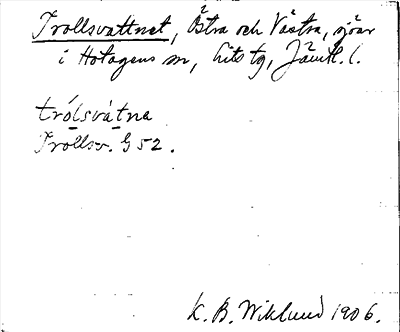 Trollsvattnet, Östra och Västra, sjöar
i Hotagens sn, Lits tg, Jämtl. l.
trólsvátna
Trollsv. G 52.
K. B. Wiklund 1906.